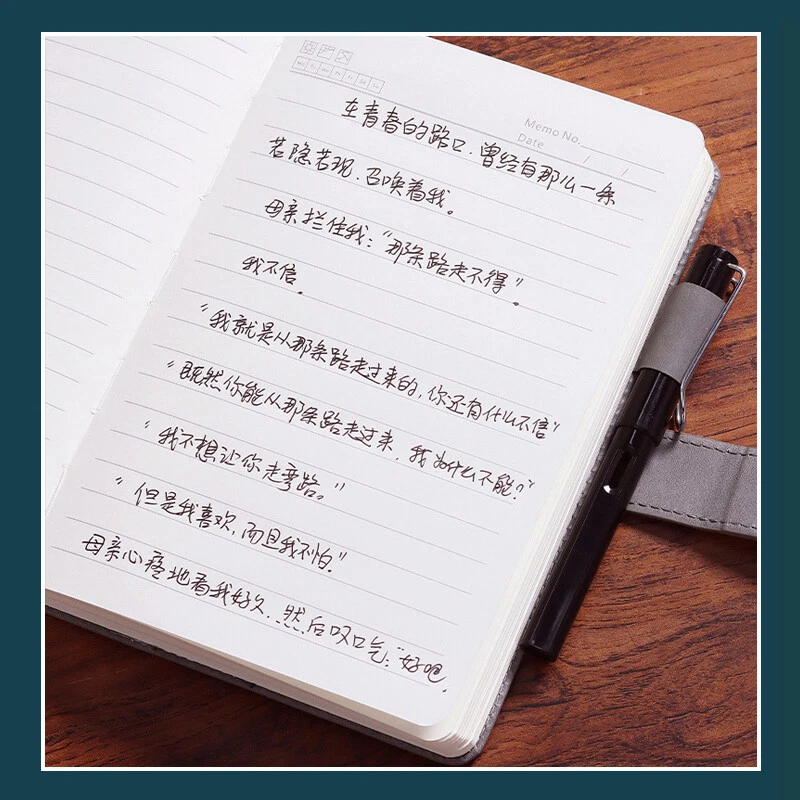 Memo No.
Date / /
在青春的路口，曾经有那么一条
若隐若现，召唤着我。
母亲拦住我：“那条路走不得”。
我不信。
“我就是从那条路走过来的，你还有什么不信”
“既然你能从那条路走过来，我为什么不能？”
“我不想让你走弯路。”
“但是我喜欢，而且我不怕。”
母亲心疼地看我好久，然后叹口气：“好吧，